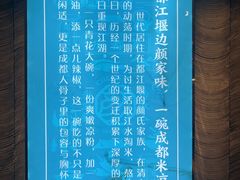 都江堰边颜家味，一碗成都米凉
世代居住在都江堰的颜氏家族，在清
的动荡时期，为过生活取江水淘米，熬
曰，历经一个世纪的变迁积累下深厚的
曰重现江湖。
一只青花大碗，一份爽嫩凉粉，加一
油，添一点儿辣椒，这一碗吃的不只是
闲适，更是成都人骨子里的包容与胸怀